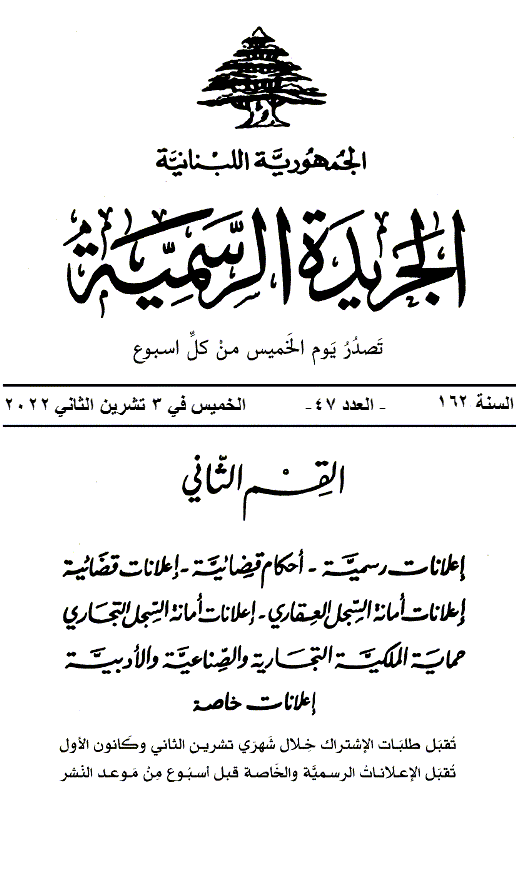 الجُمهُوريَّة اللبْنانيَّة
الجَريدَة الرّسَمِيَّة
تَصدُرُ يَوم الخَميس منْ كلِّ اسبوع
السنة ١٦٢ - العدد ٤٧ - الخميس في ٣ تشرين الثاني ٢٠٢٢
القِسْم الثّاني
إعلانات رسميَّة - أحكام قضائيَّة - إعلانات قضائية
إعلانات أمانة السِّجل العِقاري - إعلانات أمانة السِّجل التِّجاري
حماية الملكيَّة التجارية والصِّناعيَّة والأدبيَّة
إعلانات خاصة
تُقبَل طلبَات الإشتراك خِلال شَهرَي تشرين الثاني وكَانون الأول
تُقبَل الإعلاناتُ الرسميَّة والخَاصة قبل أسبُوع مِنْ مَوعد النَشر